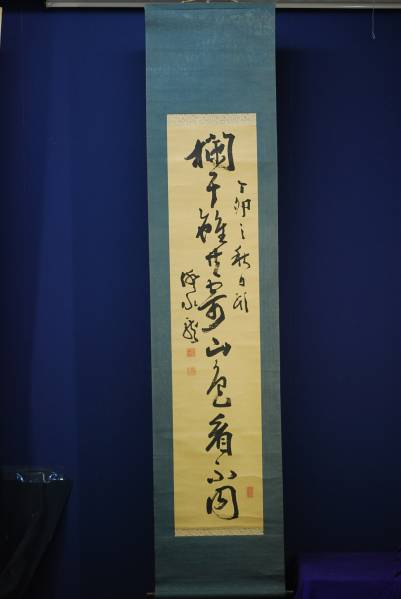 丁卯之秋日
欄干雖共寄山色看不同